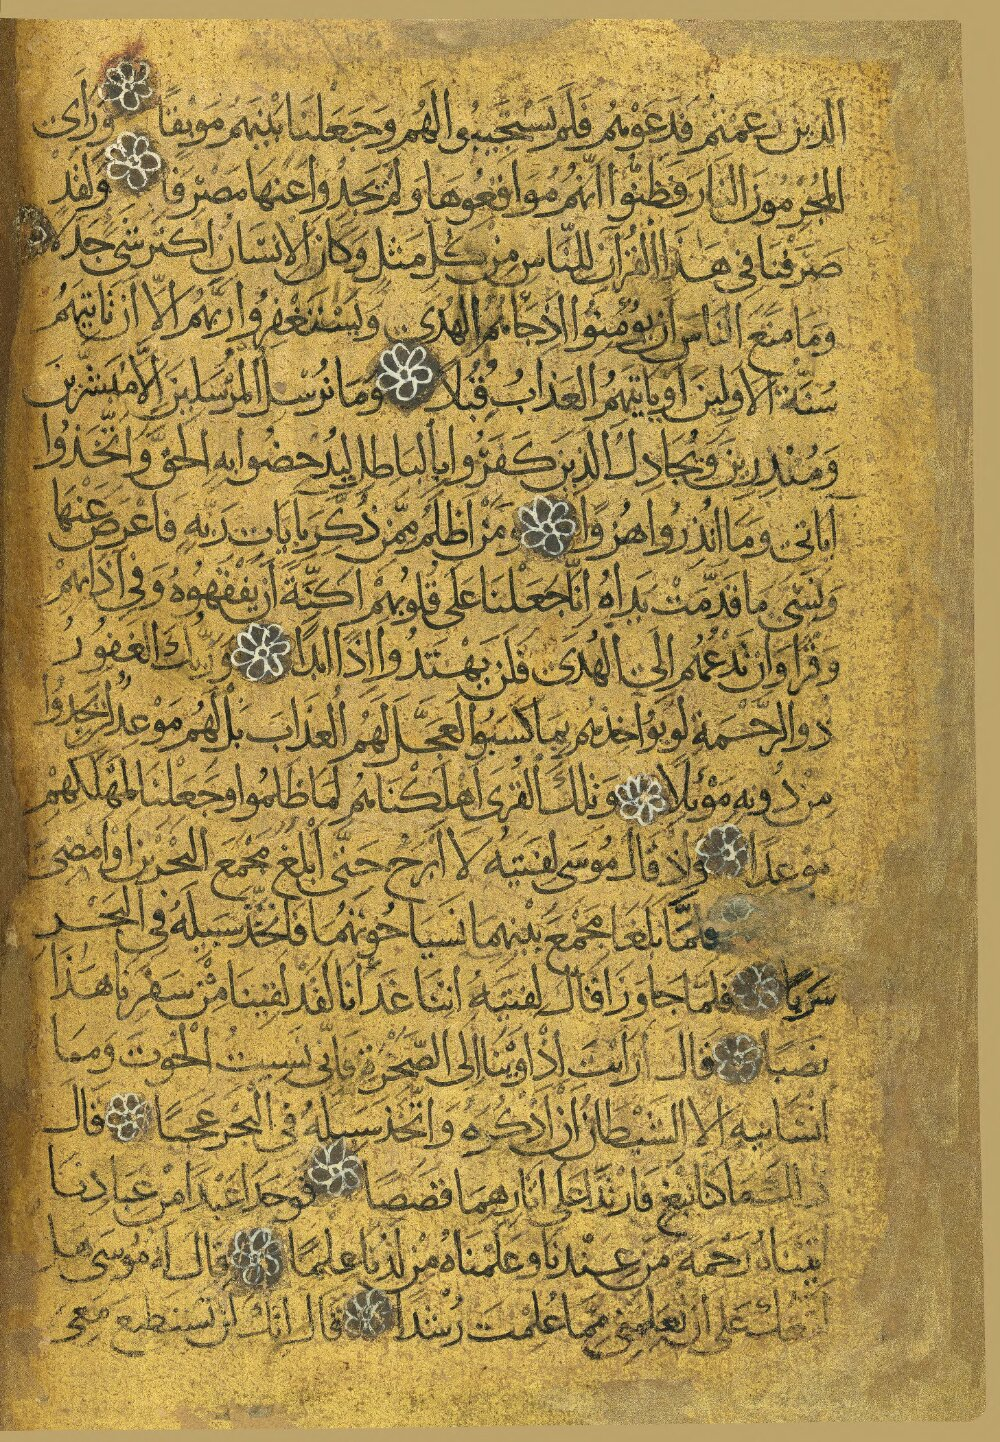 الذين زعمتم فدعوهم فلم يستجيبوا لهم وجعلنا بينهم موبقا ورأى
المجرمون النار فظنوا انهم مواقعوها ولم يجدوا عنها مصرفا ولقد
صرفنا في هذا القرآن للناس من كل مثل وكان الانسان اكثر شئ جدلا
وما منع الناس أن يؤمنوا اذ جاءهم الهدى ويستغفروا ربهم الا ان تاتيهم
سنة الاولين او ياتيهم العذاب قبلا وما نرسل المرسلين الا مبشرين
ومنذرين ويجادل الذين كفروا بالباطل ليدحضوا به الحق واتخذوا
آياتي وما انذروا هزوا ومن اظلم ممن ذكر بايات ربه فاعرض عنها
ونسى ما قدمت يداه انا جعلنا على قلوبهم اكنة أن يفقهوه وفي آذانهم
وقرا وان تدعهم الى الهدى فلن يهتدوا اذا ابدا وربك الغفور
ذو الرحمة لو يؤاخذهم بما كسبوا لعجل لهم العذاب بل لهم موعد لن يجدوا
من دونه موئلا وتلك القرى اهلكناهم لما ظلموا وجعلنا لمهلكهم
موعدا واذ قال موسى لفتيه لا ابرح حتى ابلغ مجمع البحرين او امضى
فلما بلغا مجمع بينهما نسيا حوتهما فاتخذ سبيله في البحر
سربا فلما جاوزا قال لفتيه اتنا غدانا لقد لقينا من سفرنا هذا
نصبا قال ارايت اذ اوينا الى الصخرة فانى نسيت الحوت وما
انسانيه الا الشيطان أن أذكره واتخذ سبيله في البحر عجبا قال
ذلك ما كنا نبغ فارتدا على اثارهما قصصا فوجدا عبدا من عبادنا
اتيناه رحمة من عندنا وعلمناه من لدنا علما قال له موسى هل
اتبعك على أن تعلمني مما علمت رشدا قال انك لن تستطيع معى